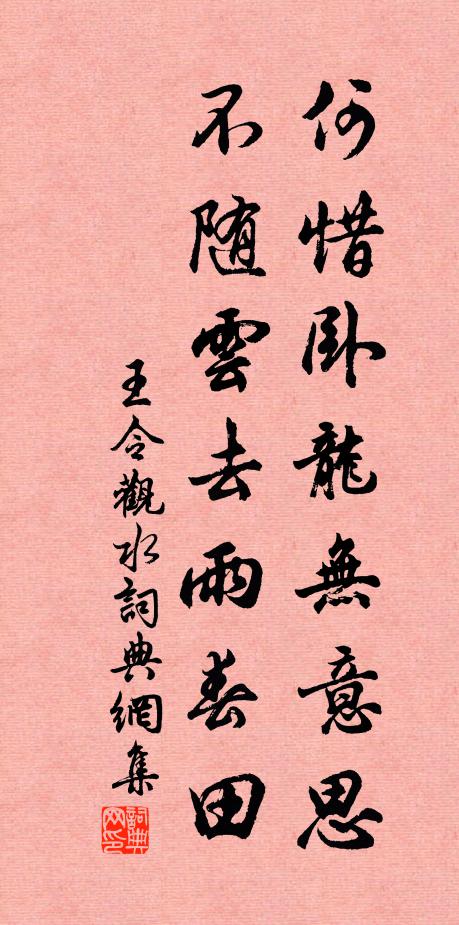 何惜卧龍無意思
不随雲去雨春田
王令觀水詞典網集
詞典网印